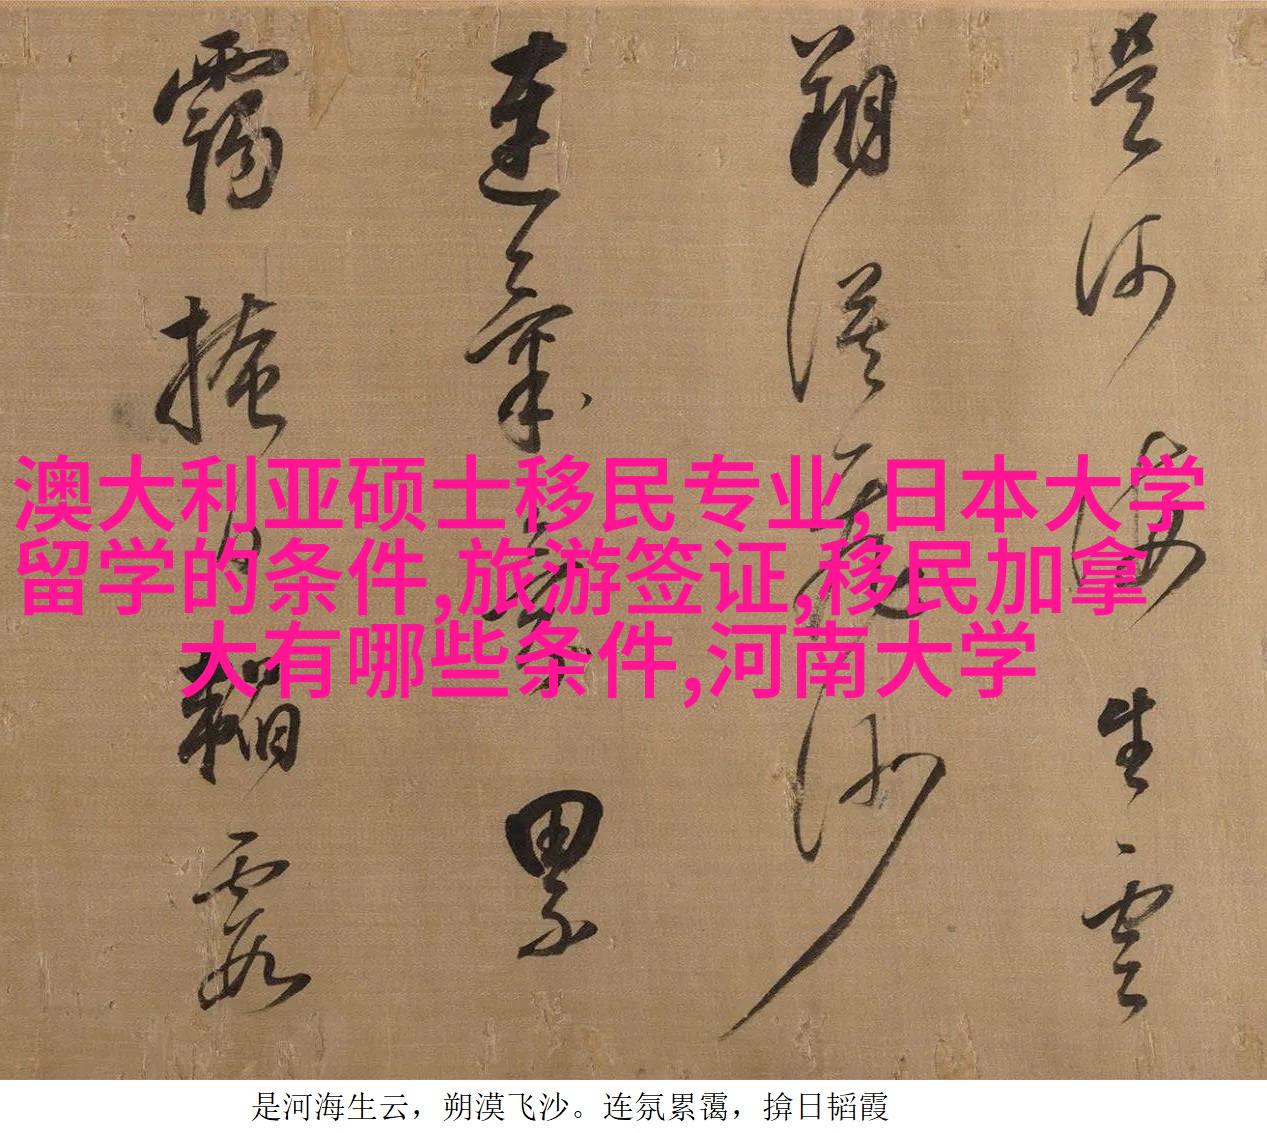 是河海生云
朔漠飞沙
连氛累
霭掩日韬霞
澳大利亚硕士移民专业,日本大学
留学的条件,旅游签证,移民加拿
大有哪些条件,河南大学
是河海生云，朔漠飞沙。连氛累霭，揜日韬霞